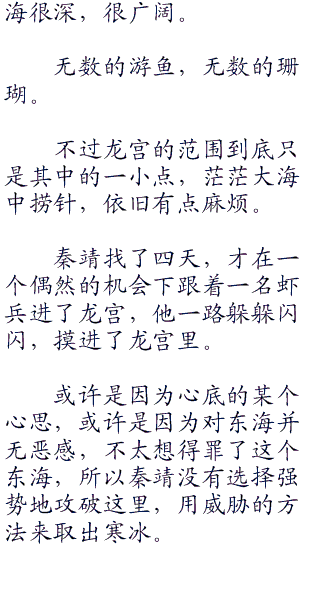 海很深，很广阔。
无数的游鱼，无数的珊
瑚。
不过龙宫的范围到底只
是其中的一小点，茫茫大海
中捞针，依旧有点麻烦。
秦靖找了四天，才在一
个偶然的机会下跟着一名虾
兵进了龙宫，他一路躲躲闪
闪，摸进了龙宫里。
或许是因为心底的某个
心思，或许是因为对东海并
无恶感，不太想得罪了这个
东海，所以秦靖没有选择强
势地攻破这里，用威胁的方
法来取出寒冰。